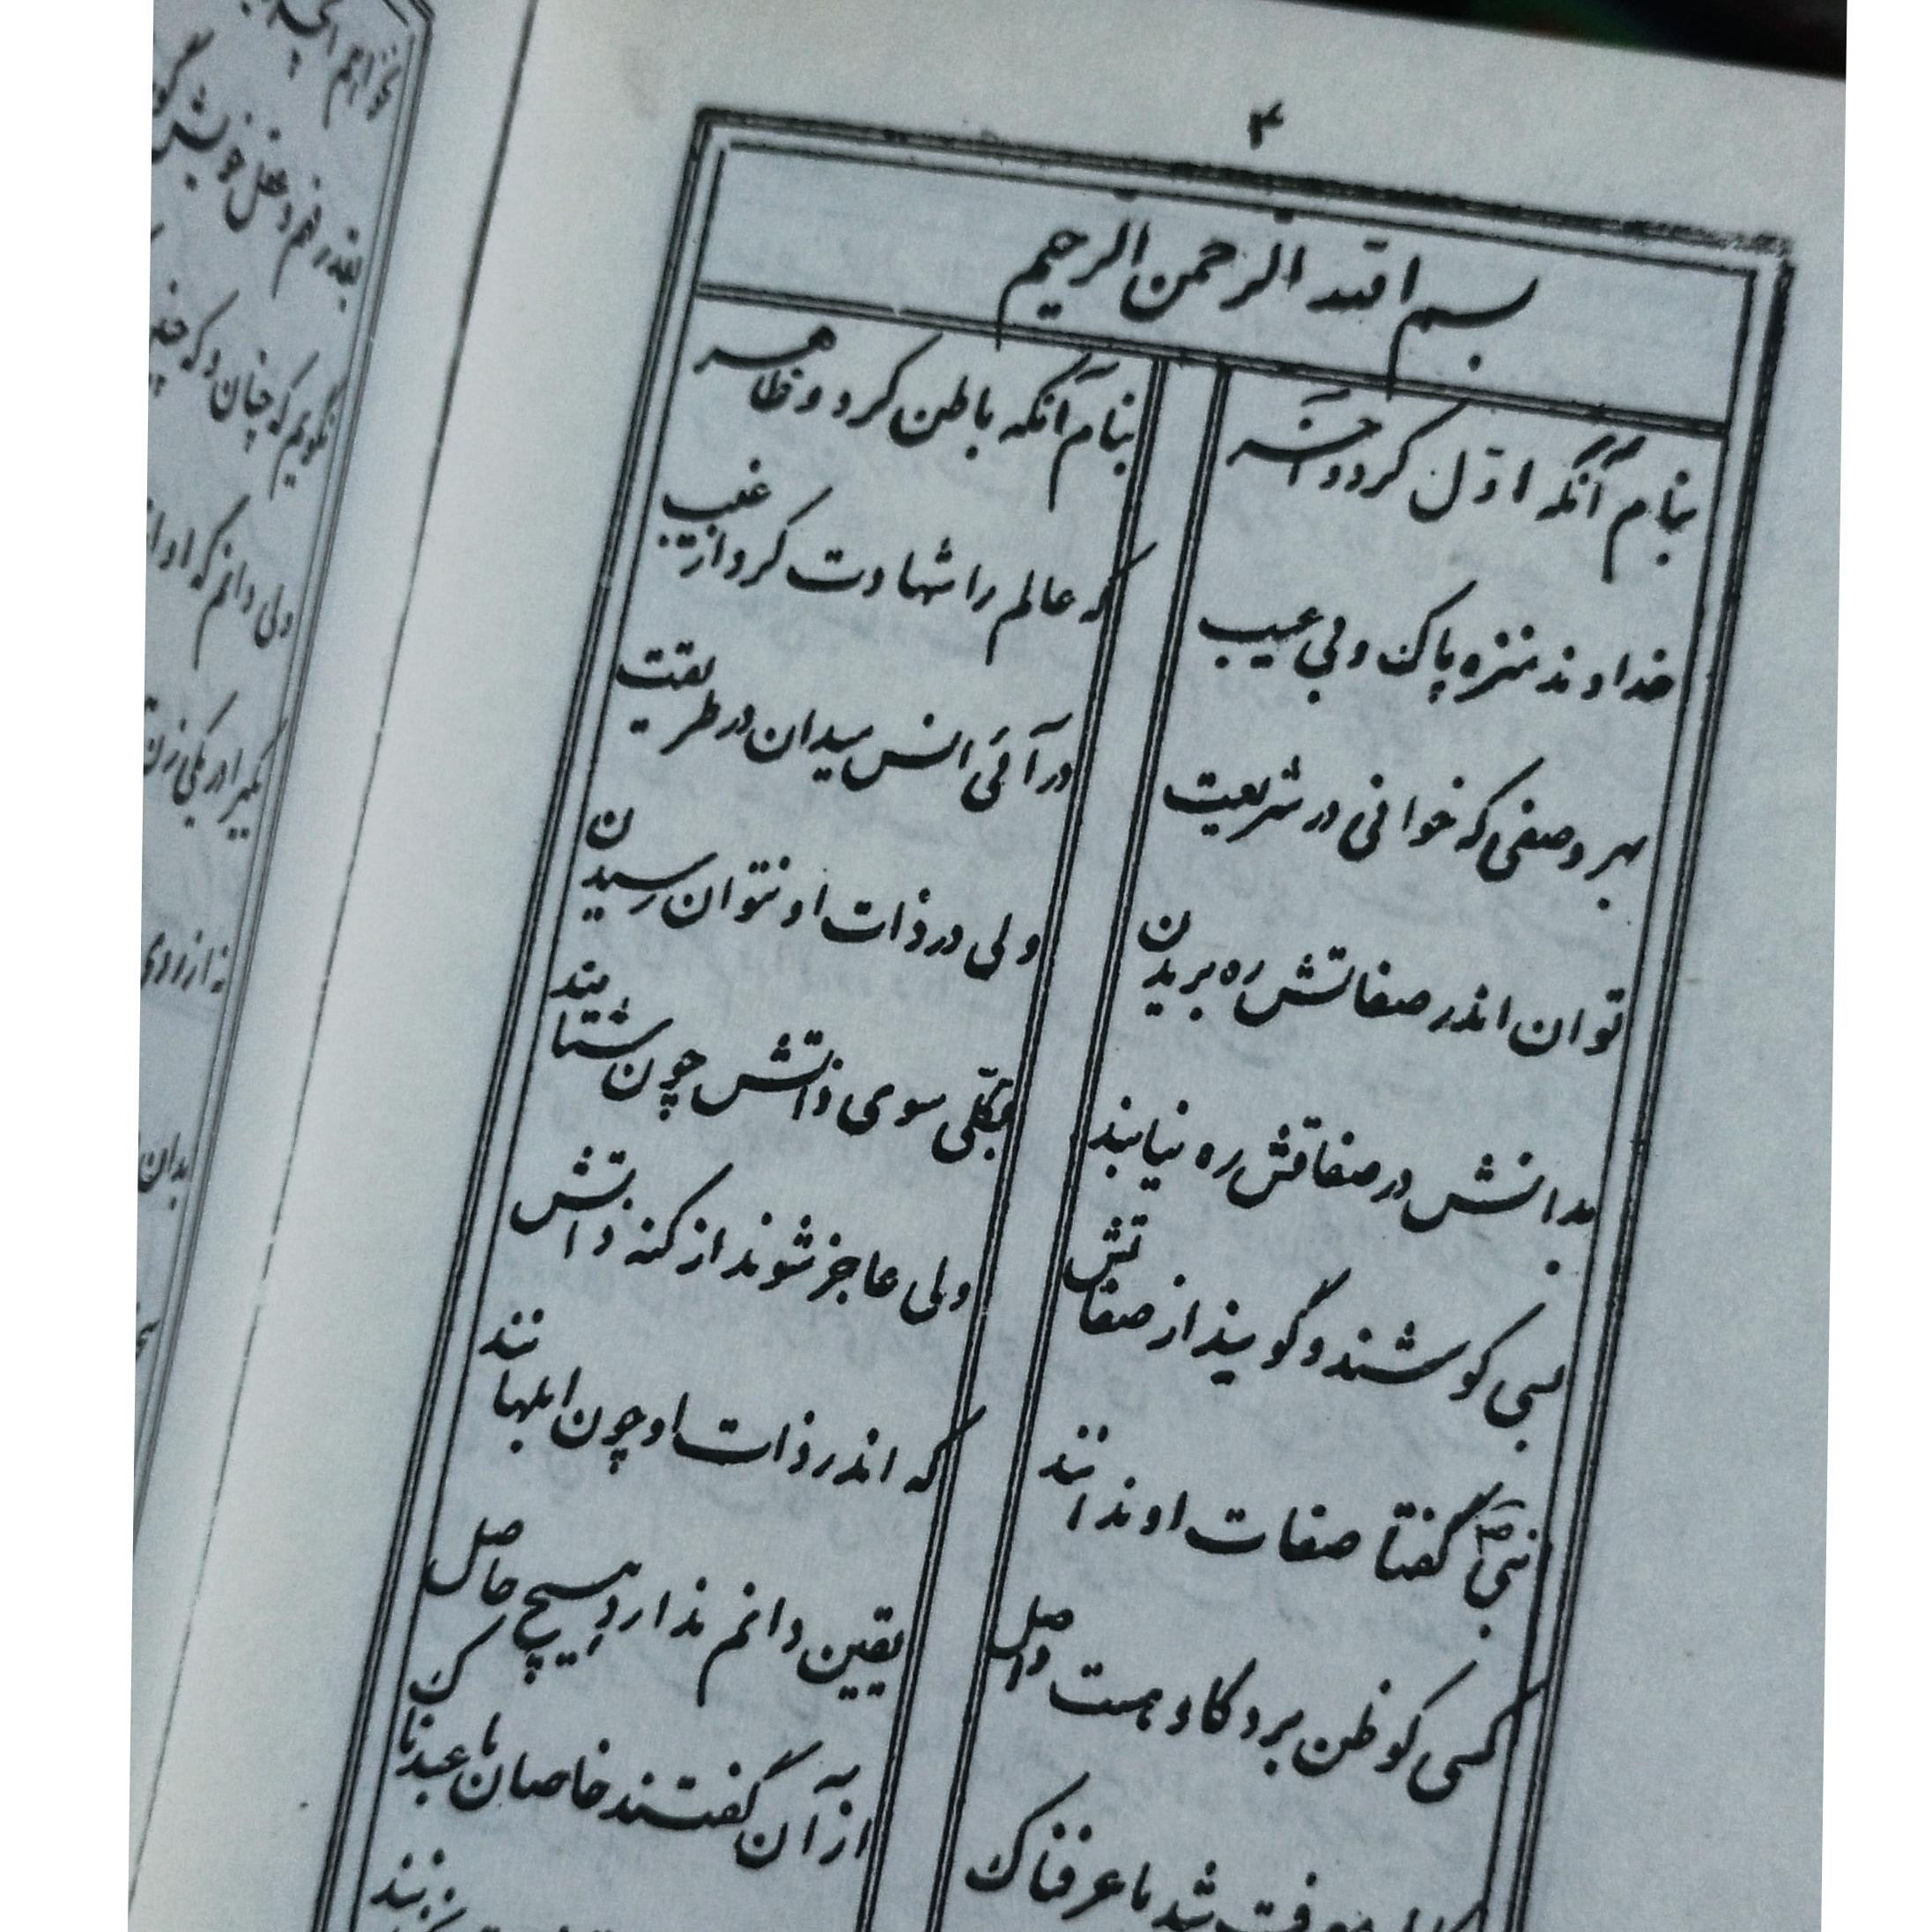 ۴
بسم الله الرحمن الرحیم
بنام آنکه اول کرد و آخر بنام آنکه باطن کرد و ظاهر
خداوند منزه پاک و بی عیب که عالم را شهادت کرد از غیب
بهر وصفی که خوانی در شریعت در آئی انس میدان در طریقت
توان اندر صفاتش ره بریدن ولی در ذات او نتوان رسیدن
بدانش در صفاتش ره نیابند بکلی سوی ذاتش چون شتابند
بسی کوشند و گویند از صفاتش ولی عاجز شوند از کنه ذاتش
نبی ص گفتا صفات او ندانند که اندر ذات او چون ابلهانند
کسی کو ظن برد کاو هست واصل یقین دانم ندارد هیچ حاصل
معرفت شد ما عرفناک از آن گفتند خاصان ما عبدناک
بقدر فهم و عقل خویش
نگویم که چنان و که
ولی دانم که او
بدان